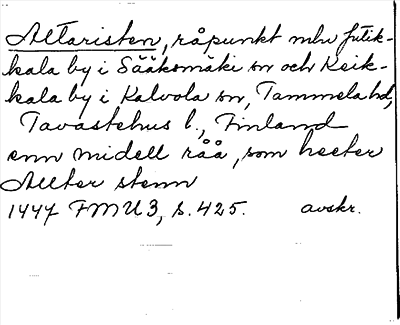 Altaristen, råpunkt mlw Jutik-
kala by i Sääksmäki sn och Keik-
kala by i Kalvola sn, Tammela hd,
Tavastehus l., Finland
enn midell råå, som heeter
Allter stenn
1447 FMU 3, s. 425. avskr.